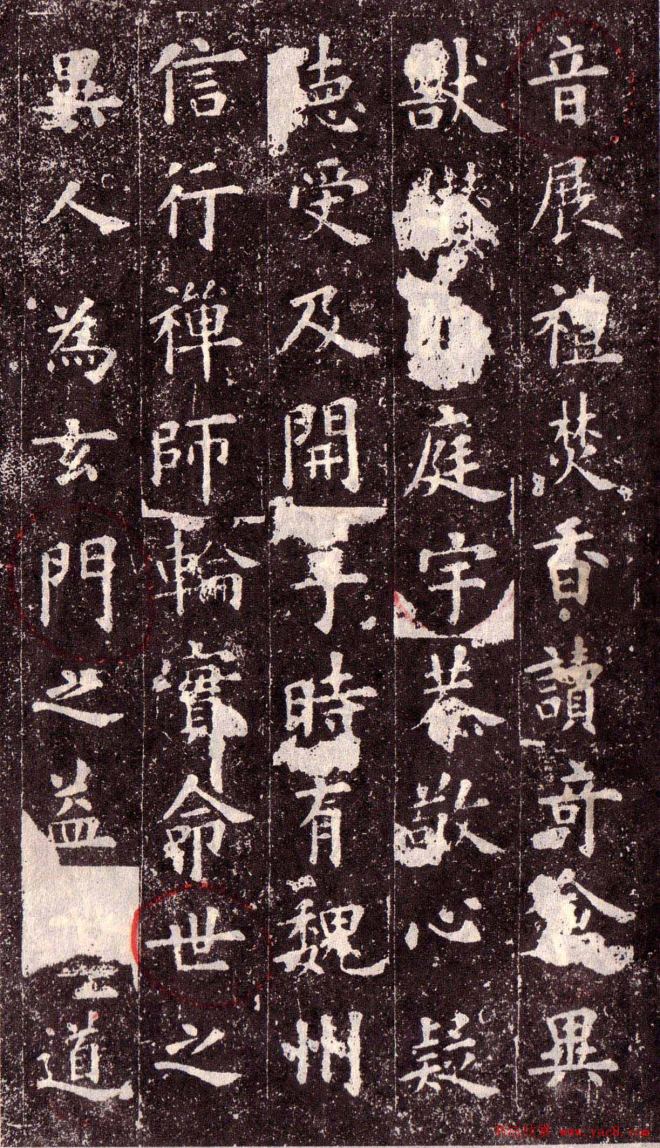 音展禮焚香讀奇禽異
獸庭宇恭敬心疑
聽受及開時有魏州
信行禪師輪實命世之
異人為玄門之益道